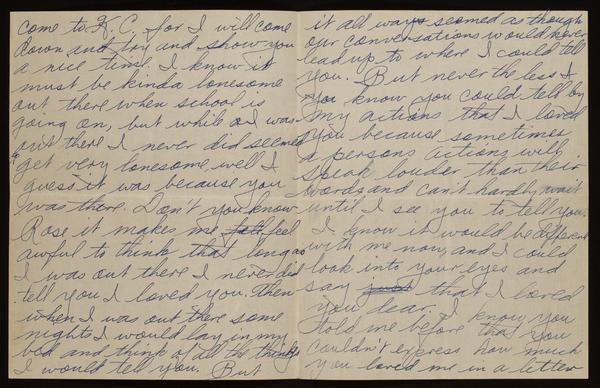 come to K.C. for I will come
down and try and show you
a nice time. I know it
must be kinda lonesome
out there when school is
going on, but while I was
out there I never did seemed
to get very lonesome, well I
guess it was because you
was there. Don't you know
Rose it makes me feel
awful to think that long as
I was out there I never did
tell you I loved you. Then
when I was out there some
nights I would lay in my
bed and think of all the things
I would tell you. But
it all ways seemed as though
our conversations would never
lead up to where I could tell
you. But never the less I
you know you could tell by
my actions that I loved
you because sometimes
a persons actions will
speak louder than their
words and can't hardly wait
until I see you to tell you.
I know it would be different
with me now, and I could
look into your eyes and
say just that I loved
you dear. I know you
told me before that you
couldn't express how much
you loved me in a letter